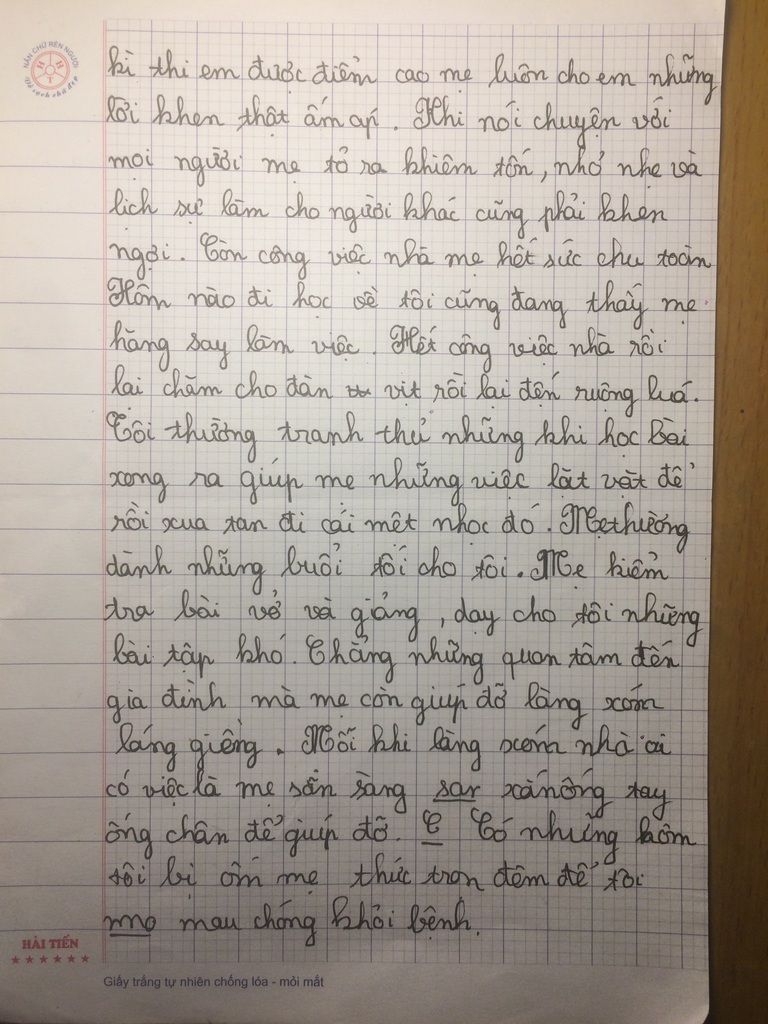 HÀN CHỮ RÈN NGƯỜI
Vở sạch chữ đẹp
kì thi em được điểm cao mẹ luôn cho em những
lời khen thật ấm áp. Khi nói chuyện với
mọi người mẹ tỏ ra khiêm tốn, nhỏ nhẹ và
lịch sự làm cho người khác cũng phải khen
ngợi. Còn công việc nhà mẹ hết sức chu toàn
Hôm nào đi học về tôi cũng đang thấy mẹ
hăng say làm việc. Hết công việc nhà rồi
lại chăm cho đàn vịt rồi lại đến ruộng luá.
Tôi thường tranh thủ những khi học bài
xong ra giúp mẹ những việc lặt vặt để
rồi xua tan đi cái mệt nhọc đó. Mẹ thường
dành những buổi tối cho tôi. Mẹ kiểm
tra bài vở và giảng, dạy cho tôi những
bài tập khó. Chẳng những quan tâm đến
gia đình mà mẹ còn giúp đỡ làng xóm
láng giềng. Mỗi khi làng xóm nhà ai
có việc là mẹ sẵn sàng sar xắn ống tay
ống chân để giúp đỡ. C Có những hôm
tôi bị ốm mẹ thức trọn đêm để tôi
mo mau chóng khỏi bệnh.
HẢI TIẾN
Giấy trắng tự nhiên chống lóa - mỏi mắt